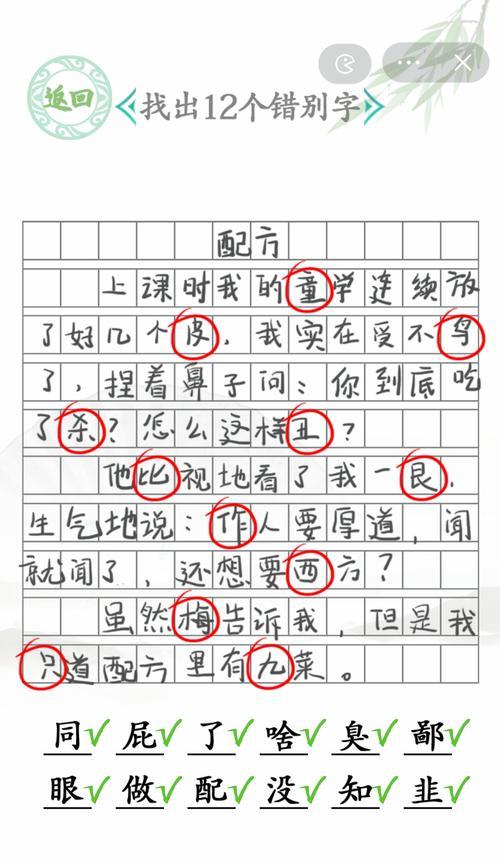 返回
找出12个错别字
配方
上课时我的童学连续放
了好几个皮，我实在受不鸟
了，捏着鼻子问：你到底吃
了杀？怎么这样丑？
他比视地看了我一艮，
生气地说：作人要厚道，闻
就闻了，还想要西方？
虽然梅告诉我，但是我
只道配方里有九菜。
同 屁 了 啥 臭 鄙
眼 做 配 没 知 韭